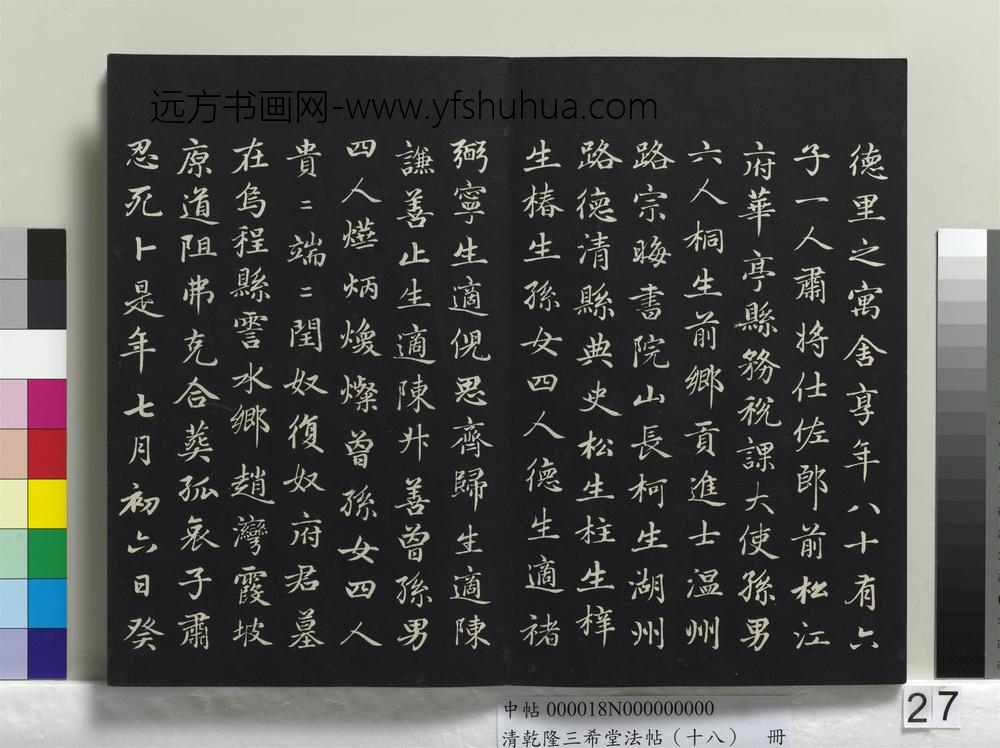 远方书画网-www.yfshuhua.com
德里之寓舍享年八十有六
子一人肅將仕佐郎前松江
府華亭縣務税課大使孫男
六人桐生前鄉貢進士温州
路宗晦書院山長柯生湖州
路德清縣典史松生柱生梓
生椿生孫女四人德生適禇
弼寧生適倪思齊歸生適陳
謙善止生適陳升善曾孫男
四人㷼炳煥燦曾孫女四人
貴二端二閏奴復奴府君墓
在烏程縣霅水鄉趙灣霞坡
原道阻弗克合葬孤哀子肅
忍死卜是年七月初六日癸
中帖 000018N000000000
清乾隆三希堂法帖（十八） 冊
27